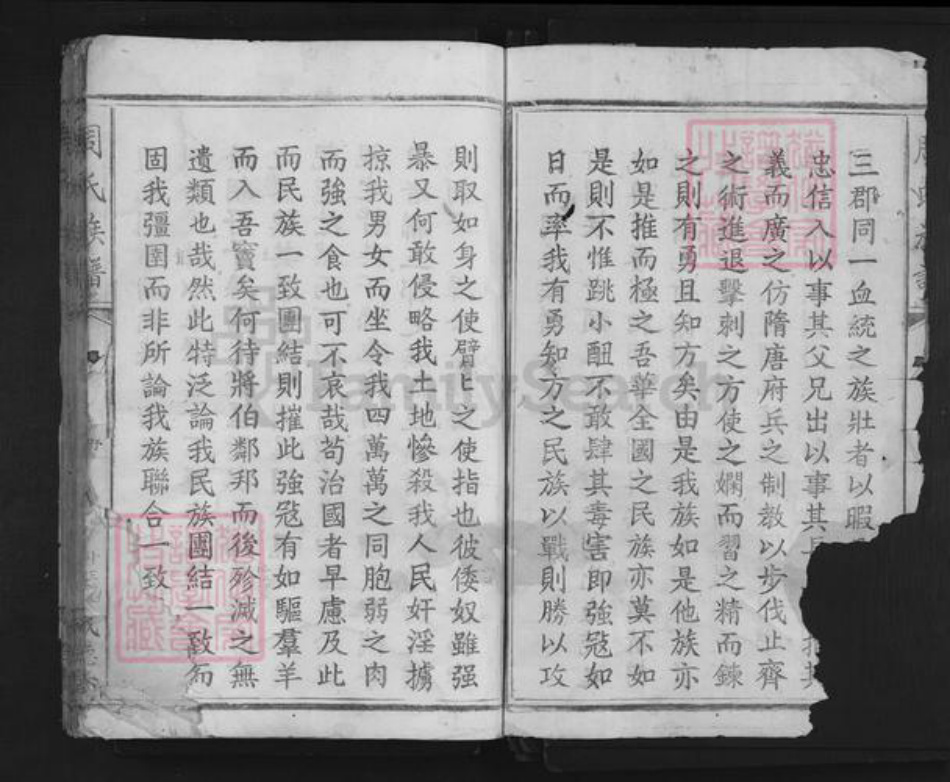 三郡同一血統之族壯者以暇
忠信入以事其父兄出以事其長
義而廣之仿隋唐府兵之制教以步伐止齊
之術進退擊刺之方使之嫻而習之精而鍊
之則有勇且知方矣由是我族如是他族亦
如是推而極之吾華全國之民族亦莫不如
是則不惟跳小醜不敢肆其毒害即強寇如
日而率我有勇知方之民族以戰則勝以攻
則取如身之使臂臂之使指也彼倭奴雖强
暴又何敢侵略我土地慘殺我人民奸淫擄
掠我男女而坐令我四萬萬之同胞弱之肉
而強之食也可不哀哉苟治國者早慮及此
而民族一致團結則摧此強寇有如驅羣羊
而入吾竇矣何待將伯鄰邦而後殄滅之無
遺類也哉然此特泛論我民族團結一致而
固我彊圉而非所論我族聯合一致
周氏族譜
FamilySearch